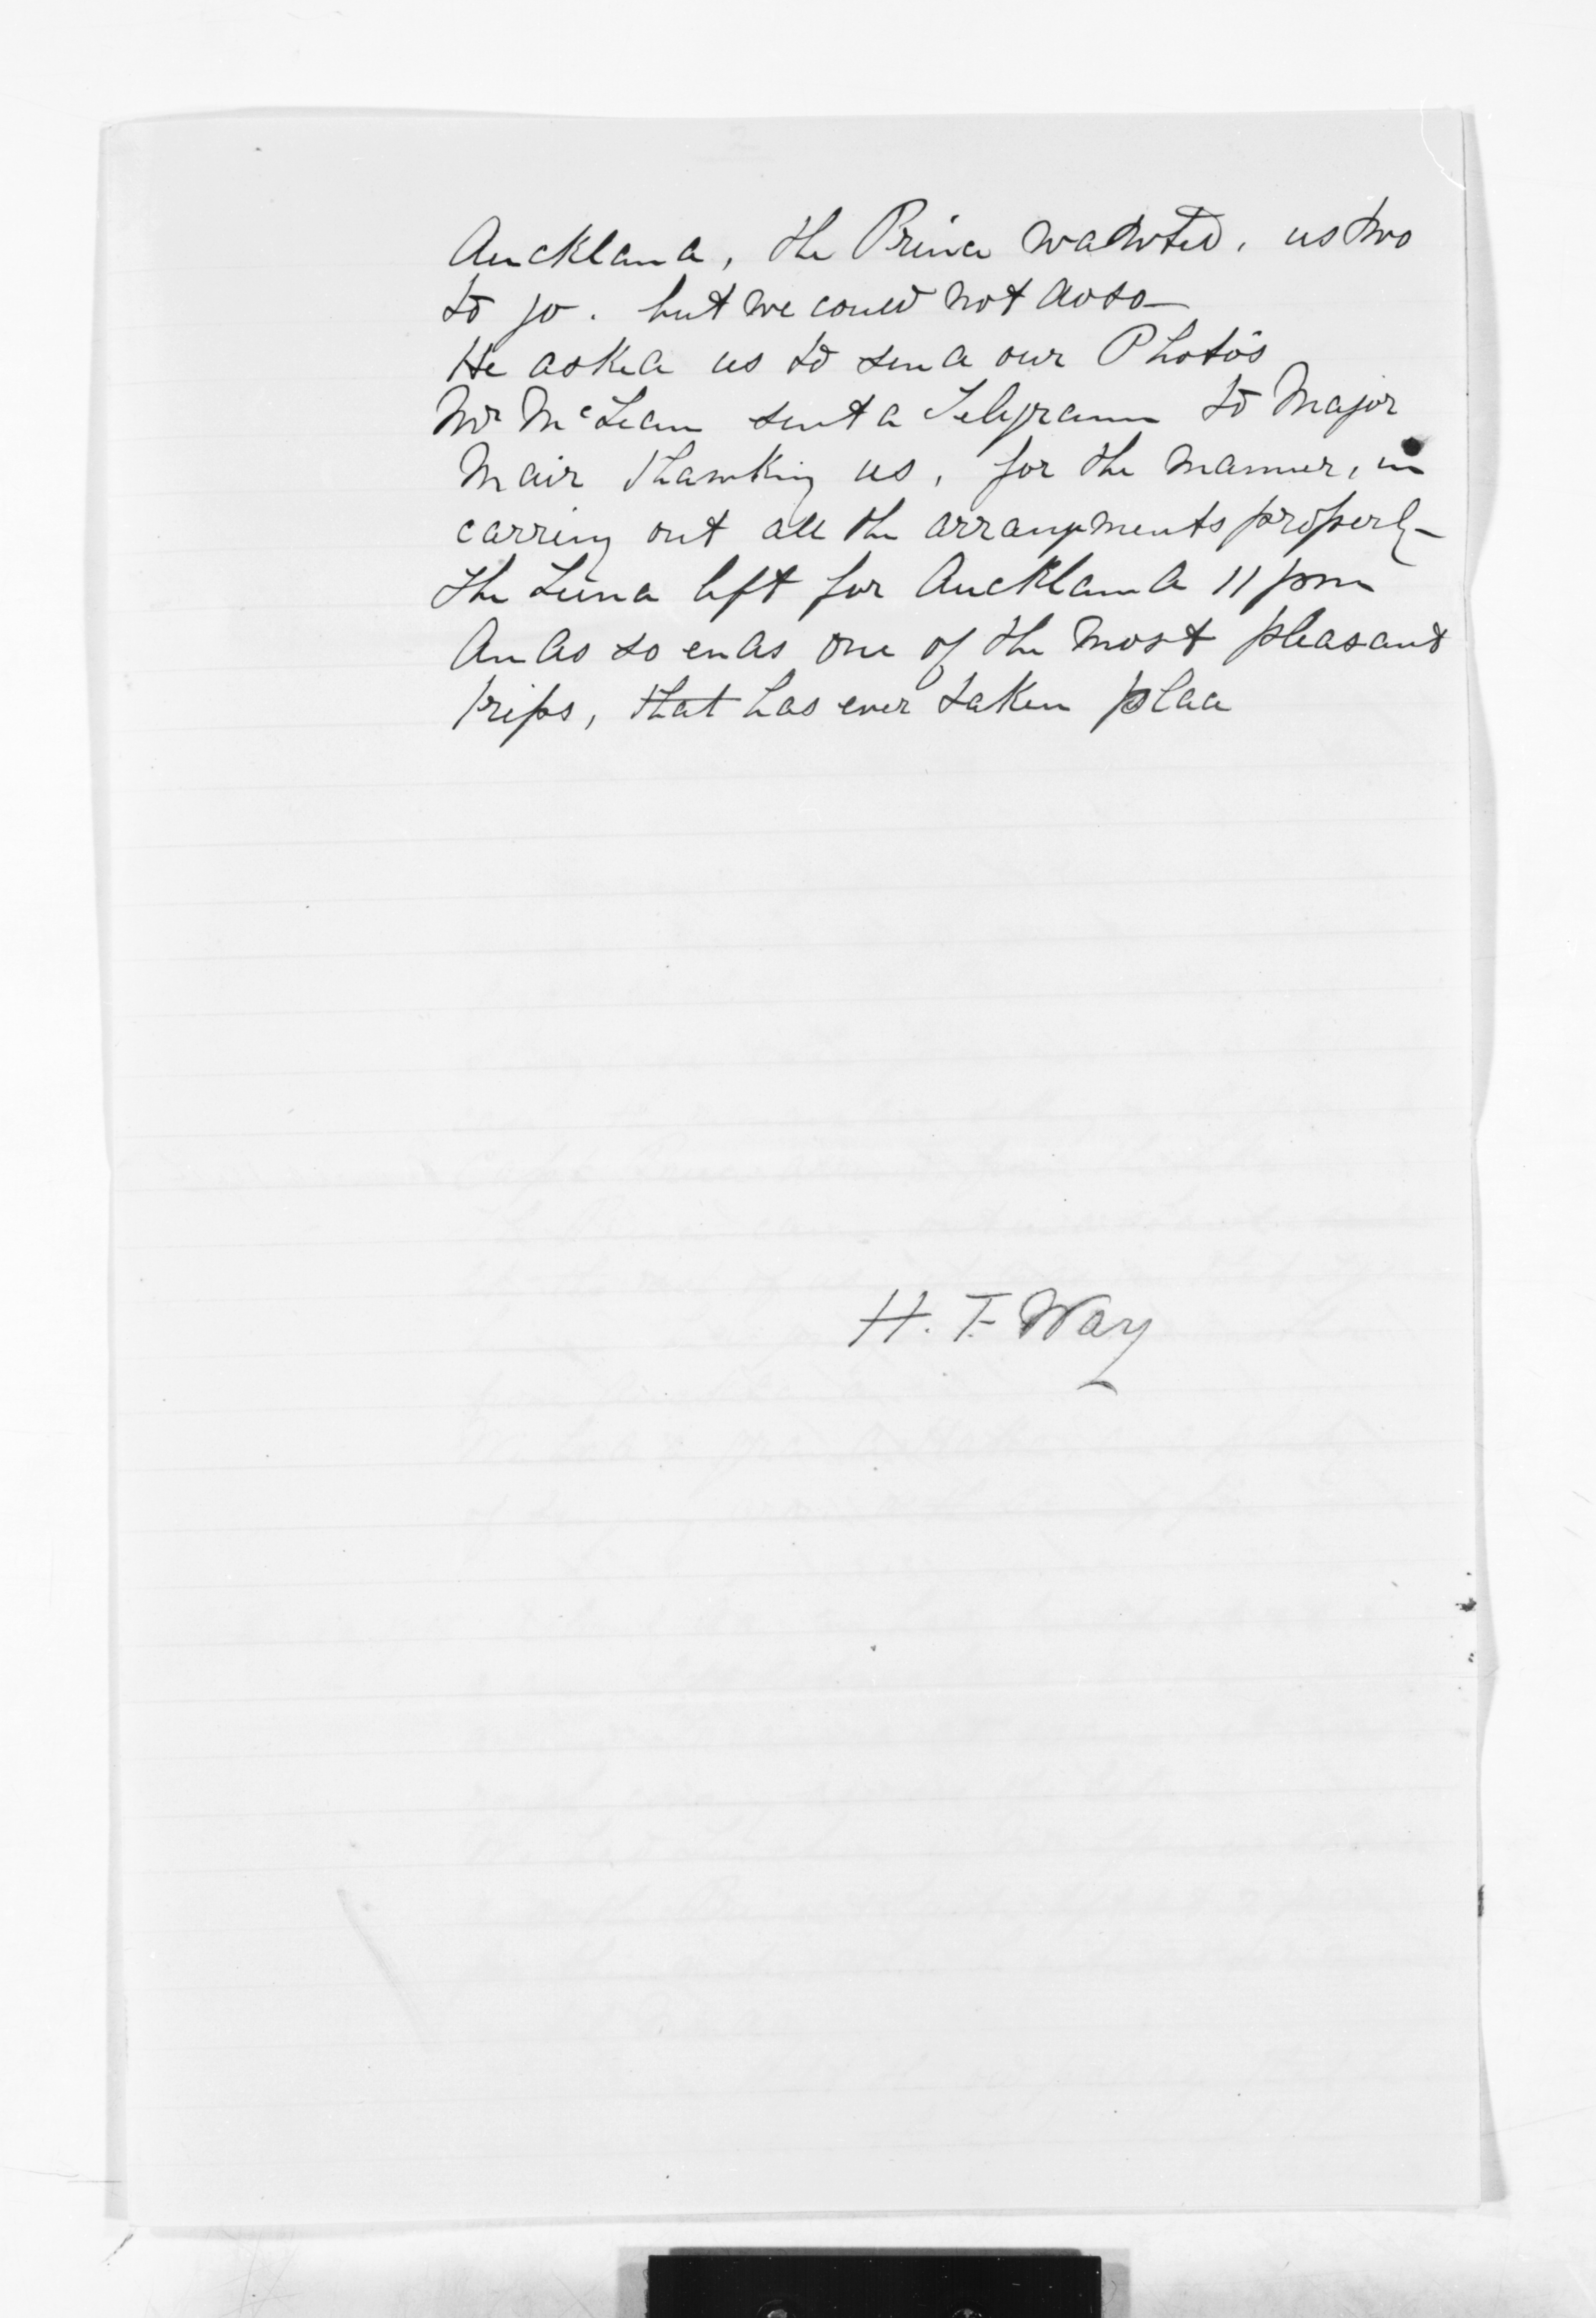 Auckland, the Prince wanted, us two
to go. but we could not do so—
He asked us to send our Photo's
Mr McLean sent a Telegramm to Major
Mair thanking us, for the manner, in
carring out all the arrangements properly—
the Luna left for Auckland 11 pm
And so ends one of the most pleasant
trips, that has ever taken place
H. F. Way